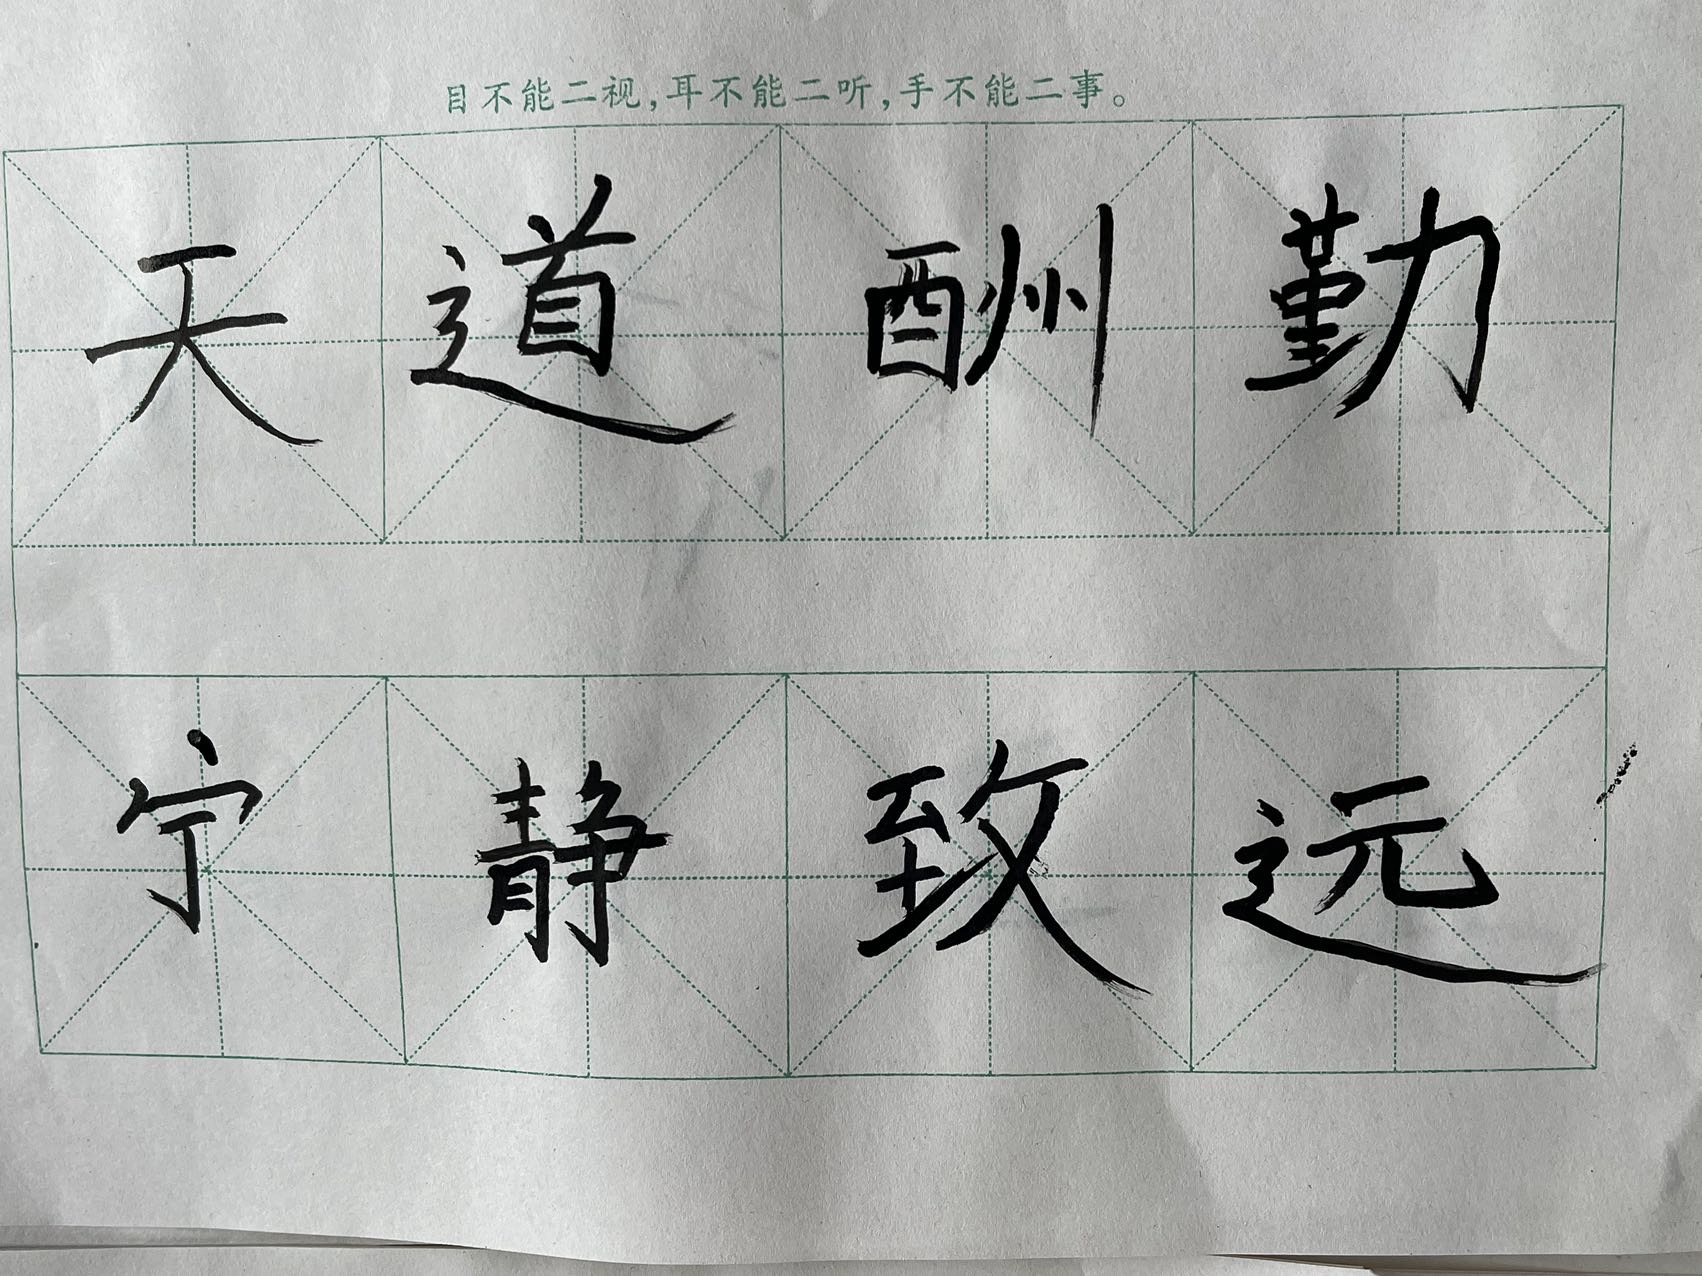 目不能二视,耳不能二听,手不能二事。
天道酬勤
宁静致远